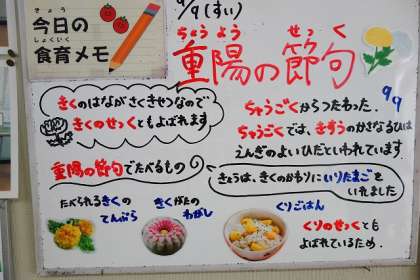 きょう
今日の
しょくいく
食育メモ
9/9(すい)
ちょうよう せっく
重陽の節句
きくのはながさくきせつなので
きくのせっくともよばれます
ちゅうごくからつたわった。
9/9
ちゅうごくでは、きすうのかさなるひは
えんぎのよいひだといわれています
重陽の節句でたべるもの
きょうは、きくのかわりにいりたまごを
いれました
たべられるきくの
てんぷら
きくがたの
わがし
くりごはん
くりのせっくとも
よばれているため。